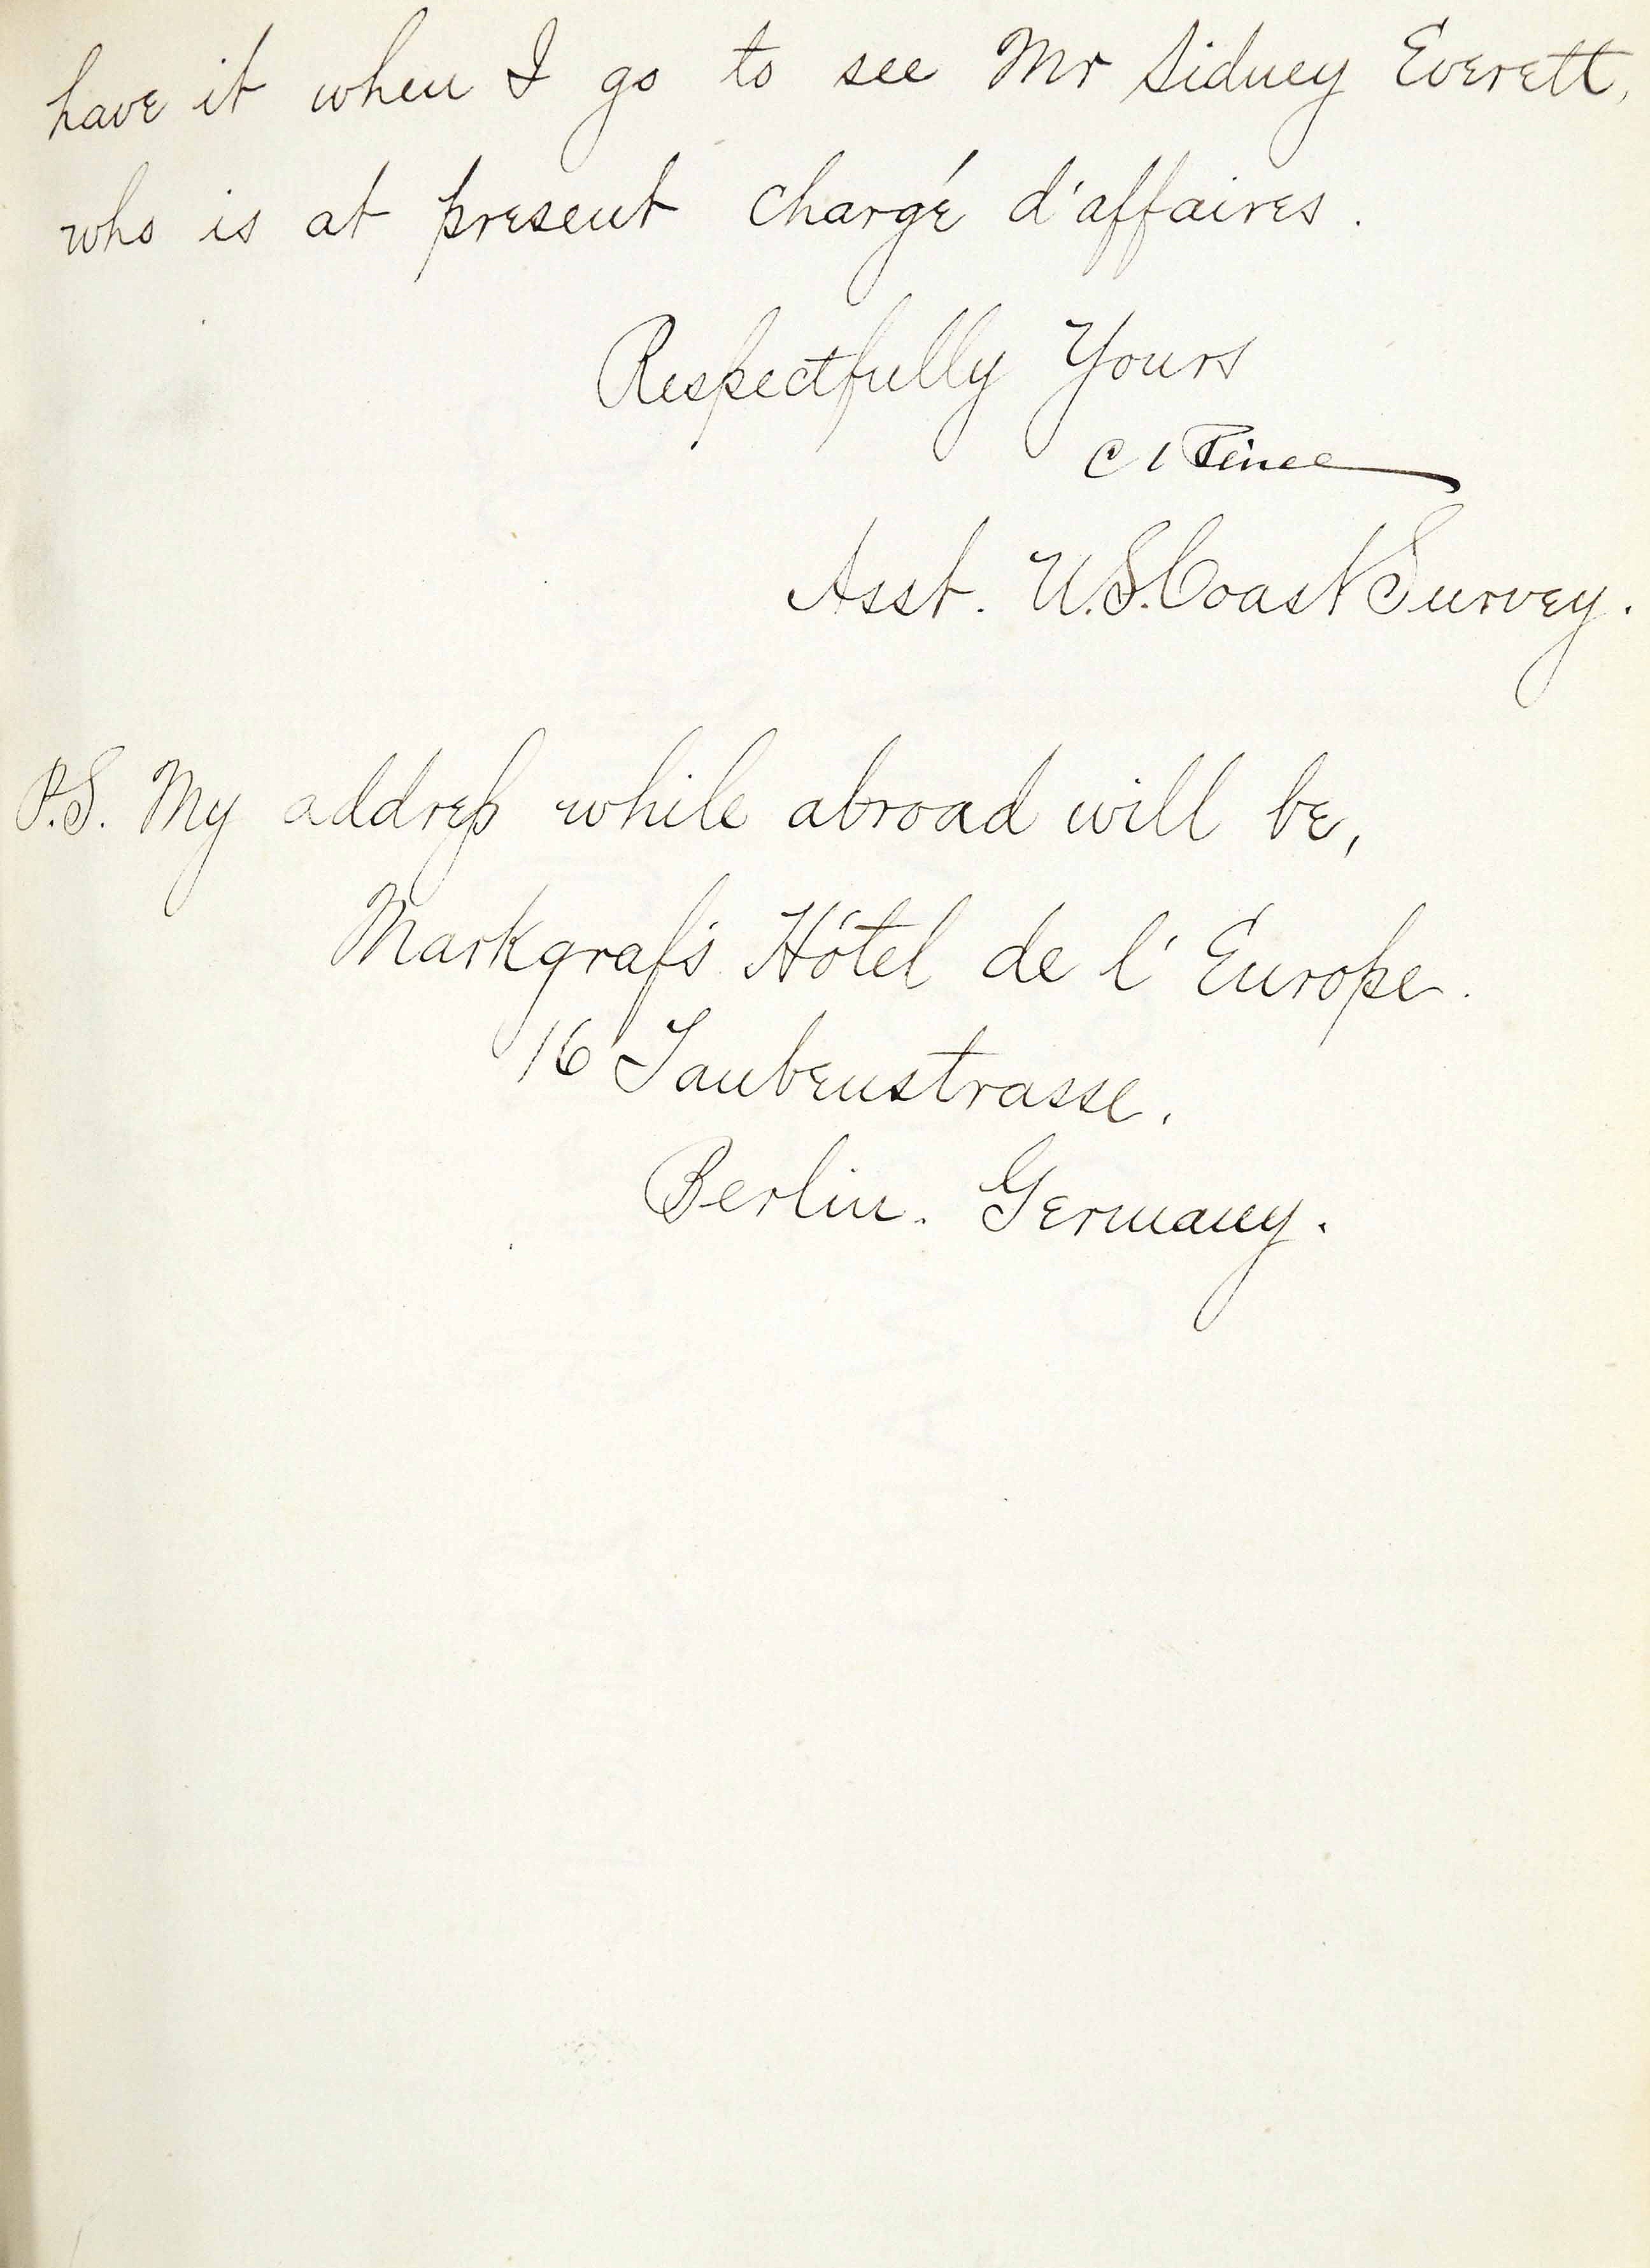 have it when I go to see Mr Sidney Everett,
who is at present chargé d'affaires.
Respectfully Yours
C S Peirce
Asst. U.S. Coast Survey.
P.S. My address while abroad will be,
Markgraf's Hôtel de l'Europe.
16 Taubenstrasse.
Berlin. Germany.